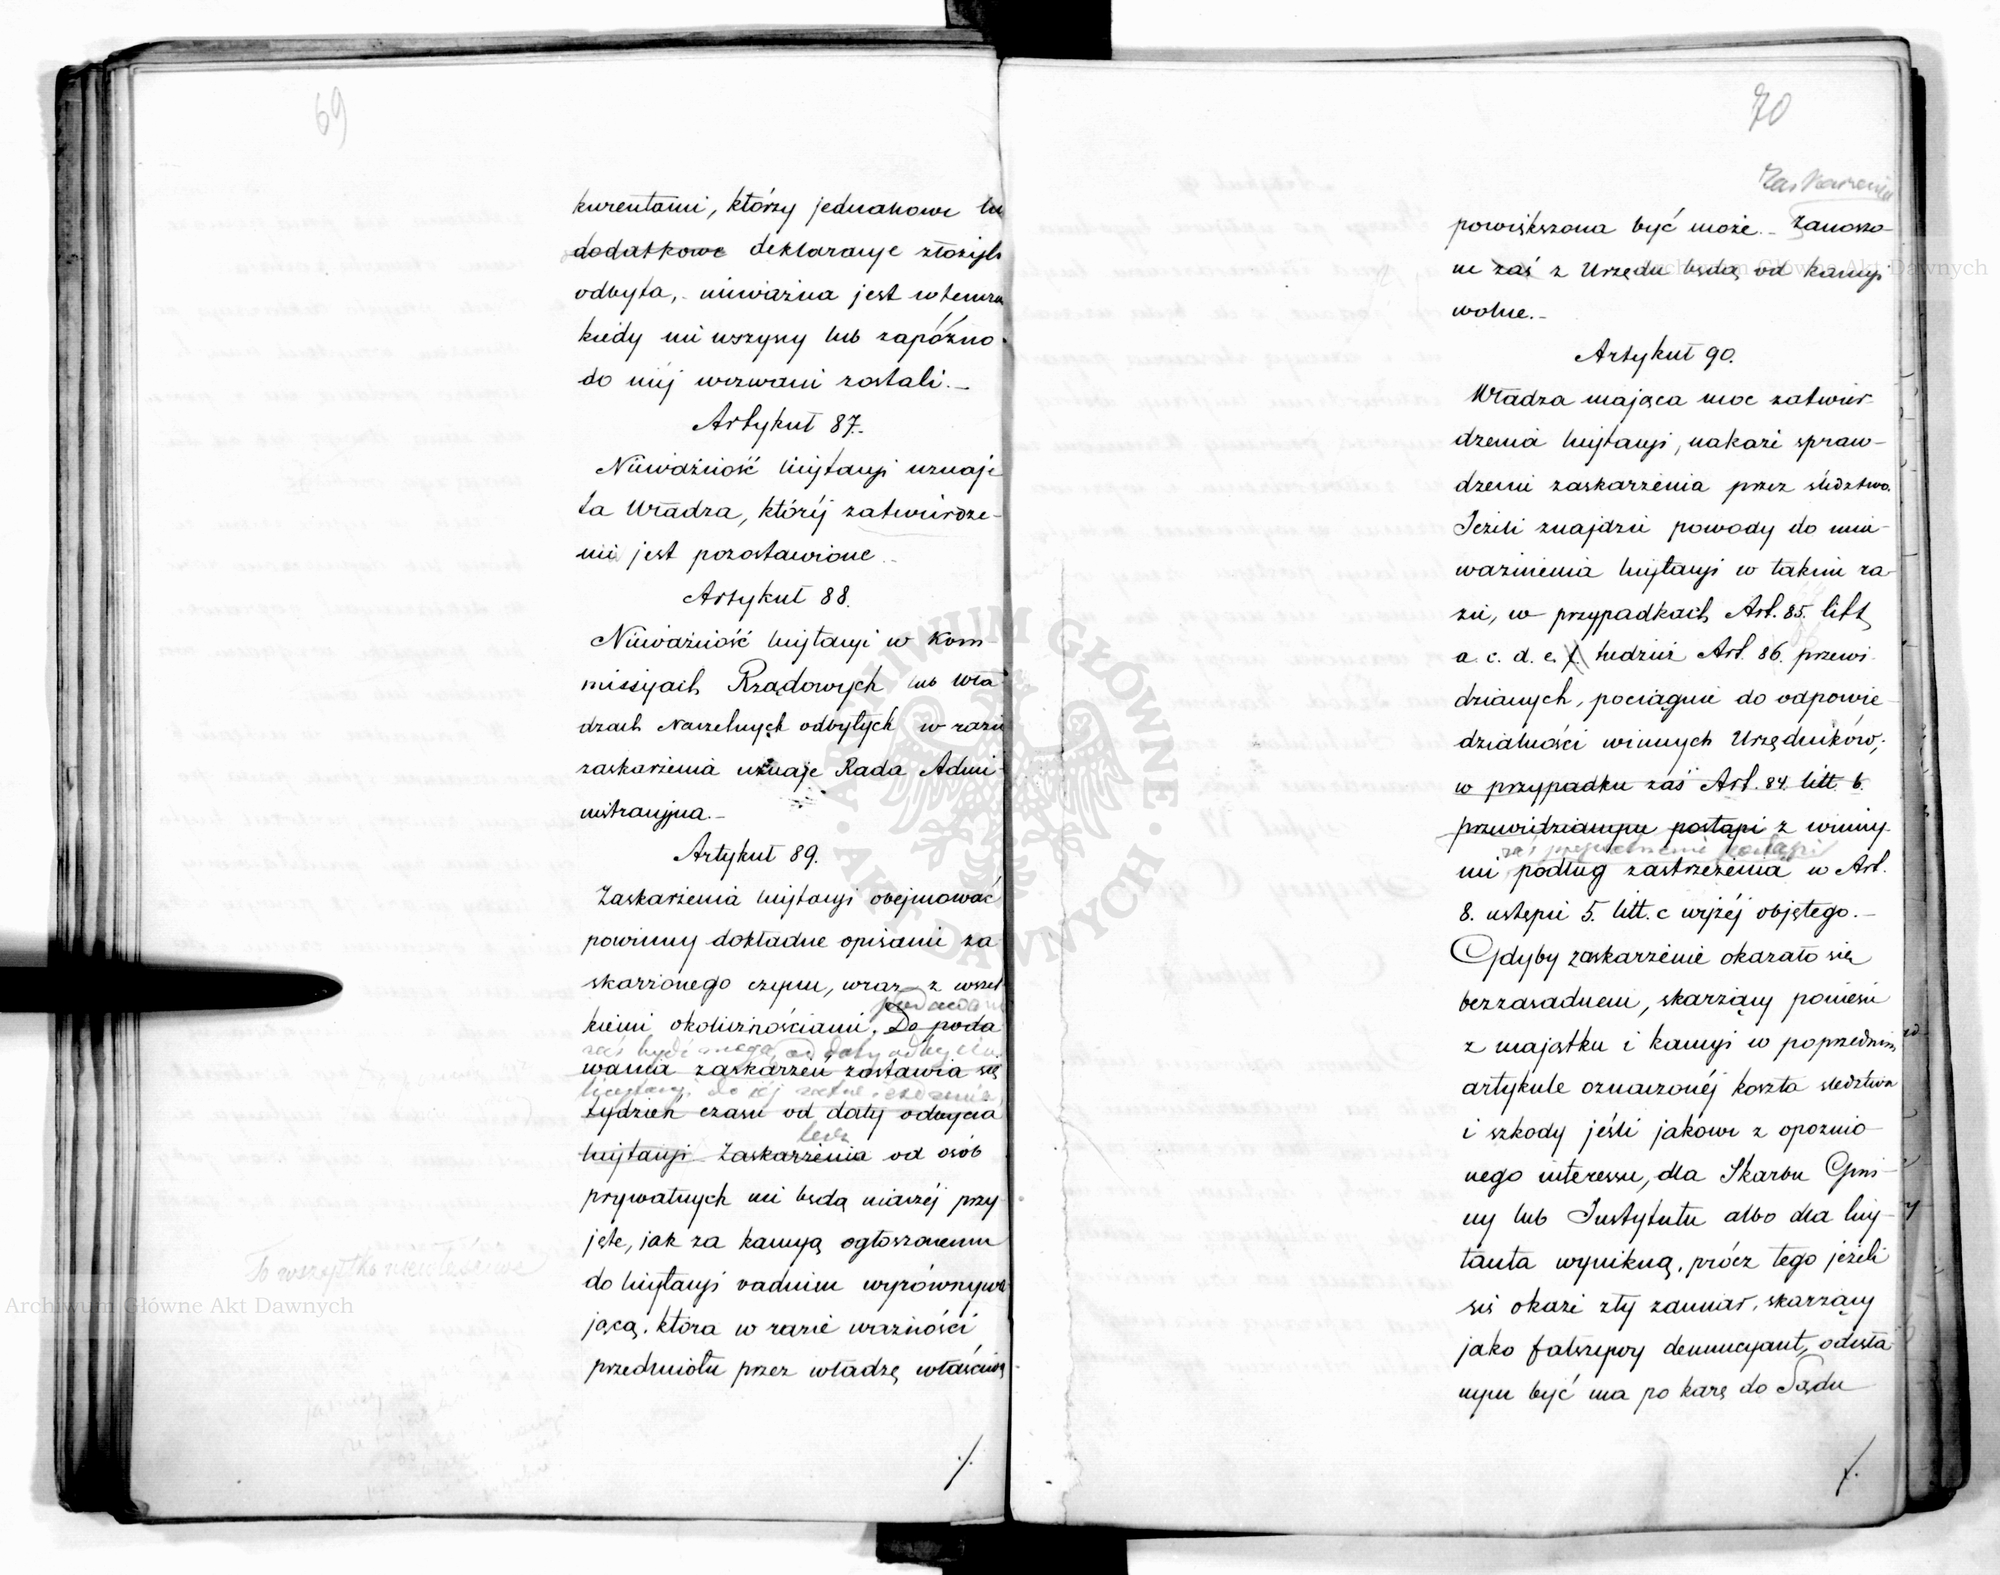 69
kurentami, którzy jednakowe lu
dodatkowe deklaracye złożyli
odbyta, nieważna jest wtenczas
kiedy nie wszyscy lub zapóźno
do niéj wezwani zostali. –
Artykuł 87.
Nieważność licytacyi uznaje
ta Władza, któréj zatwierdze-
nie jest pozostawione. –
Artykuł 88.
Nieważność licytacyi w Kom-
missyach Rządowych lub Wła-
dzach Naczelnych odbytych w razie
zaskarżenia uznaje Rada Admi-
nistracyjna. –
Artykuł 89.
Zaskarżenia licytacyi obejmować
powinny dokładne opisanie za
skarżonego czynu, wraz z wszel
kiemi okolicznościami. Do poda
podawane
zaś być mogą, od daty odbycia
wania zaskarżeń zostawia się
licytacyi do jéj
tydzień czasu od daty odbycia
lecz
licytacyi. Zaskarżenia od osób
prywatnych nie będą inaczéj przy-
jęte, jak za kaucyą ogłoszonemu
do licytacyi vadium wyrównywa-
jącą, która w razie ważności
przedmiotu przez władzę właściwą
To wszystko niewłaściwe
./.
70
Zaskarżenia
powiększona być może. – Zanoszo-
ne zaś z Urzędu będą od kaucyi
wolne. –
Artykuł 90.
Władza mająca moc zatwier-
dzenia licytacyi, nakaże spraw-
dzenie zaskarżenia przez śledztwo.
Jeżeli znajdzie powody do unie-
ważnienia licytacyi w takim ra-
zie, w przypadkach Art. 85. litt
a. c. d. e. f. tudzież Art. 86. przewi-
dzianych, pociągnie do odpowie-
dzialności winnych Urzędników;
w przypadku zaś Art. 84. litt. b.
przewidzianym postąpi z winny-
zaś postąpi
mi podług zastrzeżenia w Art.
8. ustępie 5. litt. c wyżéj objętego. –
Gdyby zaskarżenie okazało się
bezzasadnem, skarżący poniesie
z majątku i kaucyi w poprzednim
artykule oznaczonéj koszta śledztwa
i szkody jeśli jakowe z opoźnio-
nego interessu, dla Skarbu Gmi-
ny lub Instytutu albo dla licy-
tanta wynikną, prócz tego jeżeli
się okaże zły zamiar, skarżący
jako fałszywy denuncyant, odesła-
nym być ma po karę do Sądu
./.
Archiwum Główne Akt Dawnych
Archiwum Główne Akt Dawnych
ARCHIWUM GŁÓWNE
AKT DAWNYCH